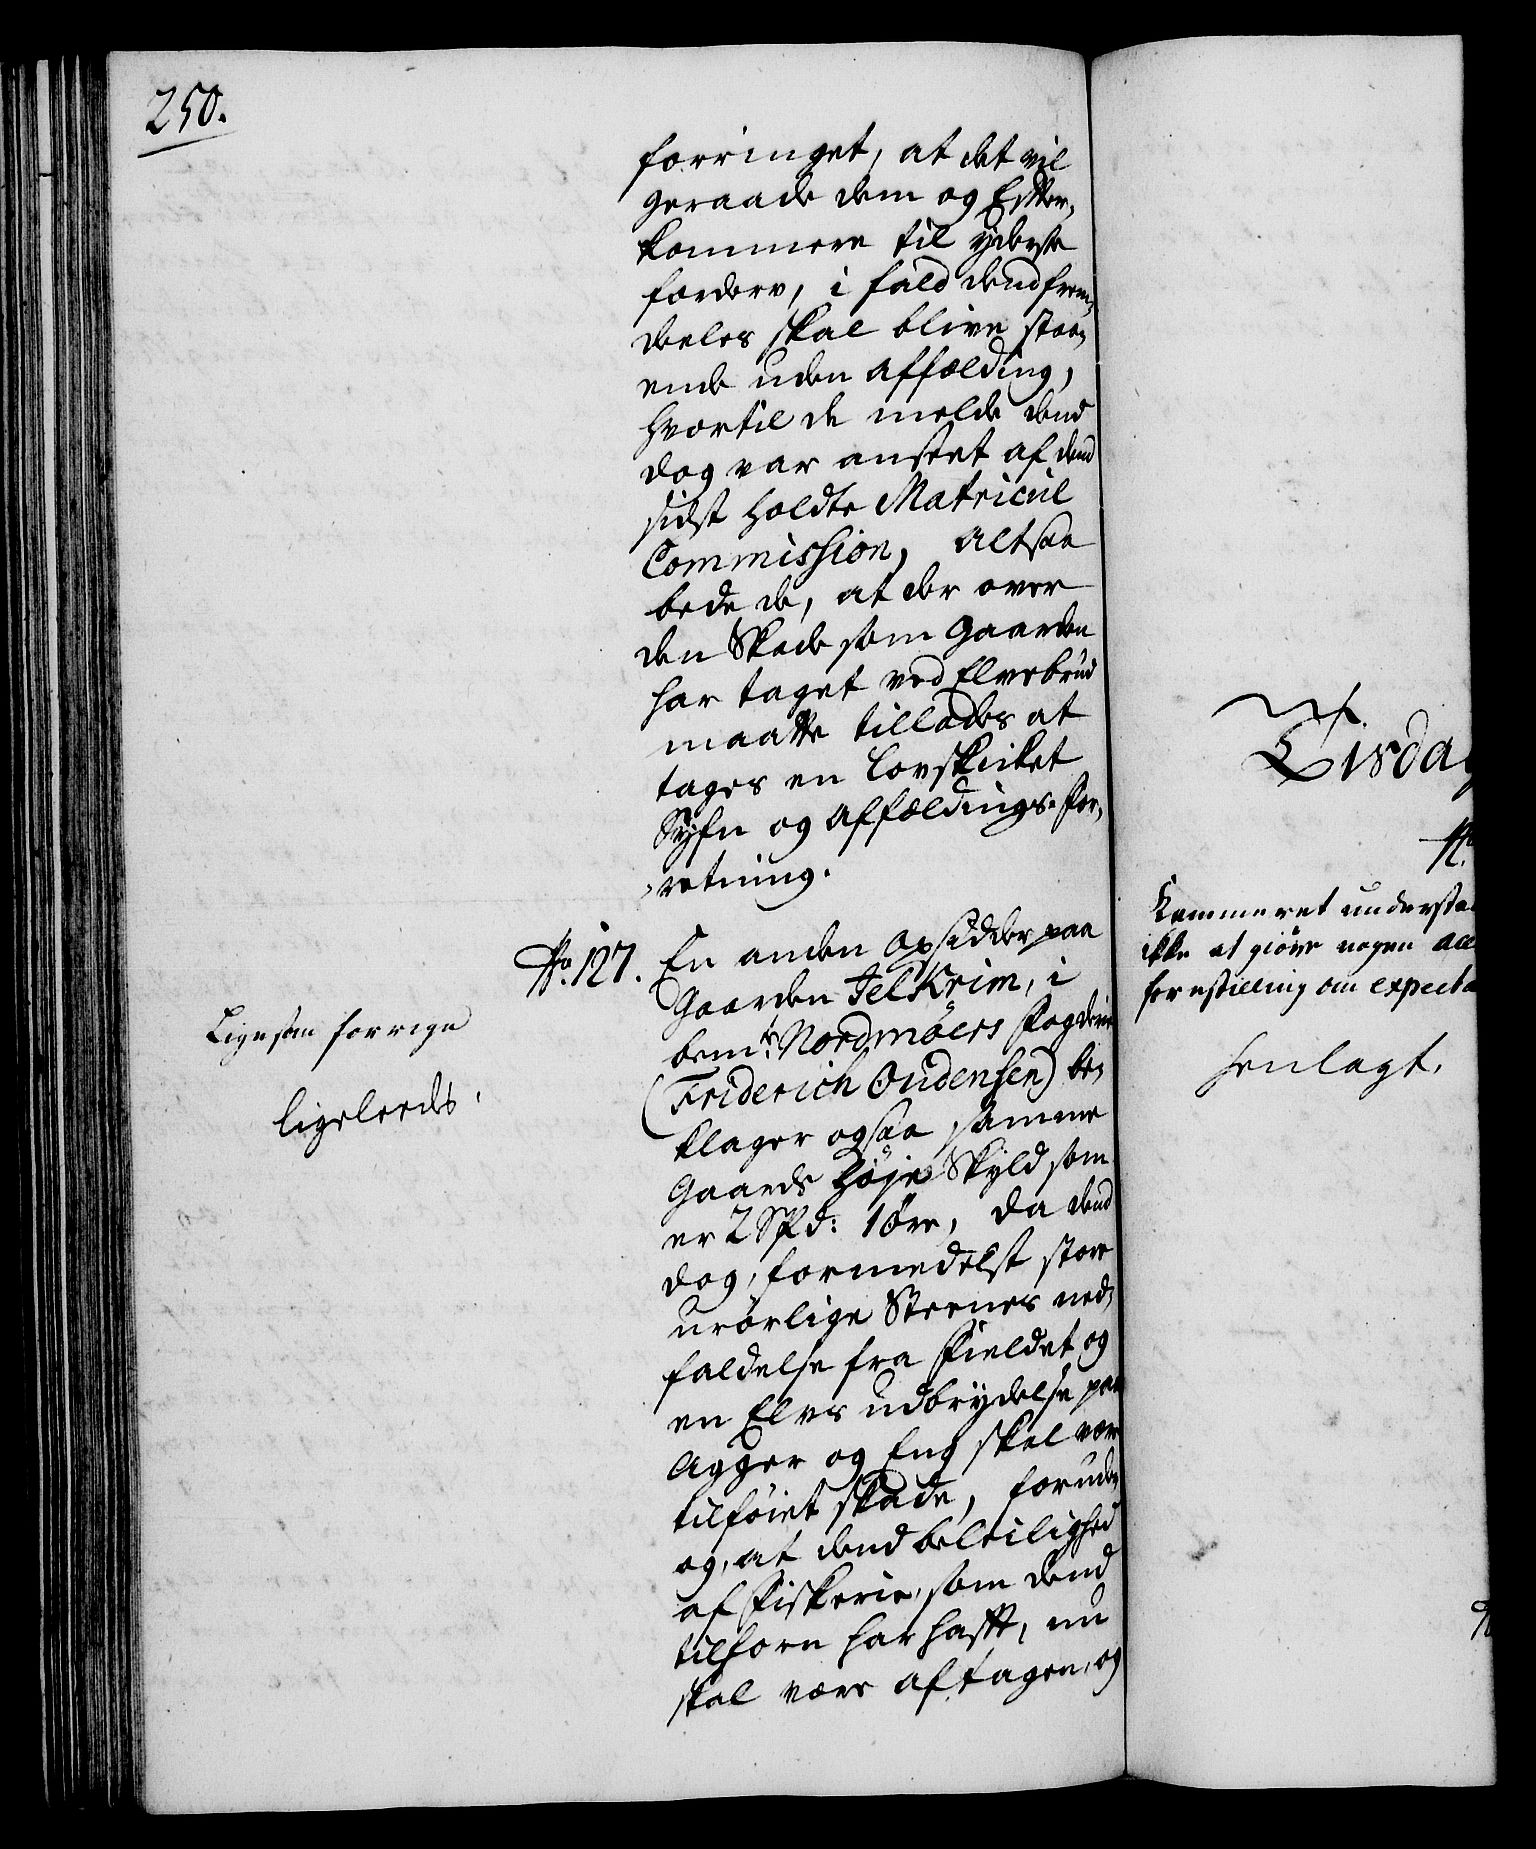 250.
forringet, at det vil
geraade dem og Efter-
kommere til yderste
forderv, i fald dend frem-
deeles skal blive staa-
ende uden affælding,
hvortil de melde dend
dog var anseet af dend
sidst holdte Matricul
Commission, altsaa
bede de, at der over
den Skade som Gaarden
har taget ved Elvebrud
maatte tillades at
tages en lovskicket
Syfn og affældings-For-
retning.
No. 127.
En anden Opsidder paa
Gaarden Jelkrim, i
bemte Nordmöers Fogderie
(Friderich Oudensen) be-
klager ogsaa samme
Gaards høje Skyld som
er 2 Spd: 1 öre, da dend
dog, formedelst store
urörlige Steenes ned-
faldelse fra Fieldet og
en Elvs udbrydelse paa
Agger og Eng skal være
tilföiet skade, foruden
og, at dend beleilighed
af Fiskerie, som dend
tilforn har hafft, nu
skal være aftagen, og
Ligesom forrige
ligeleeds.
Tisdag
No
Kammeret understaa
ikke at giöre nogen all
forestilling om expecta
henlagt.